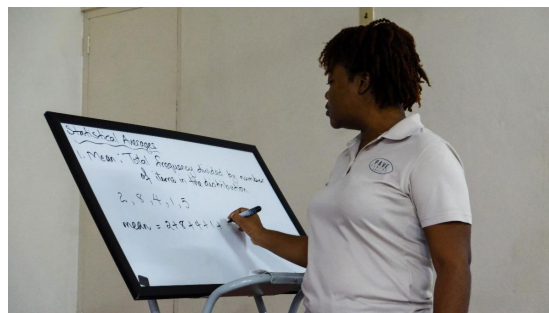 Statistical Averages
1. Mean: Total frequency divided by number
of items in the distribution
2, 8, 4, 1, 5
mean = 2+8+4+1+